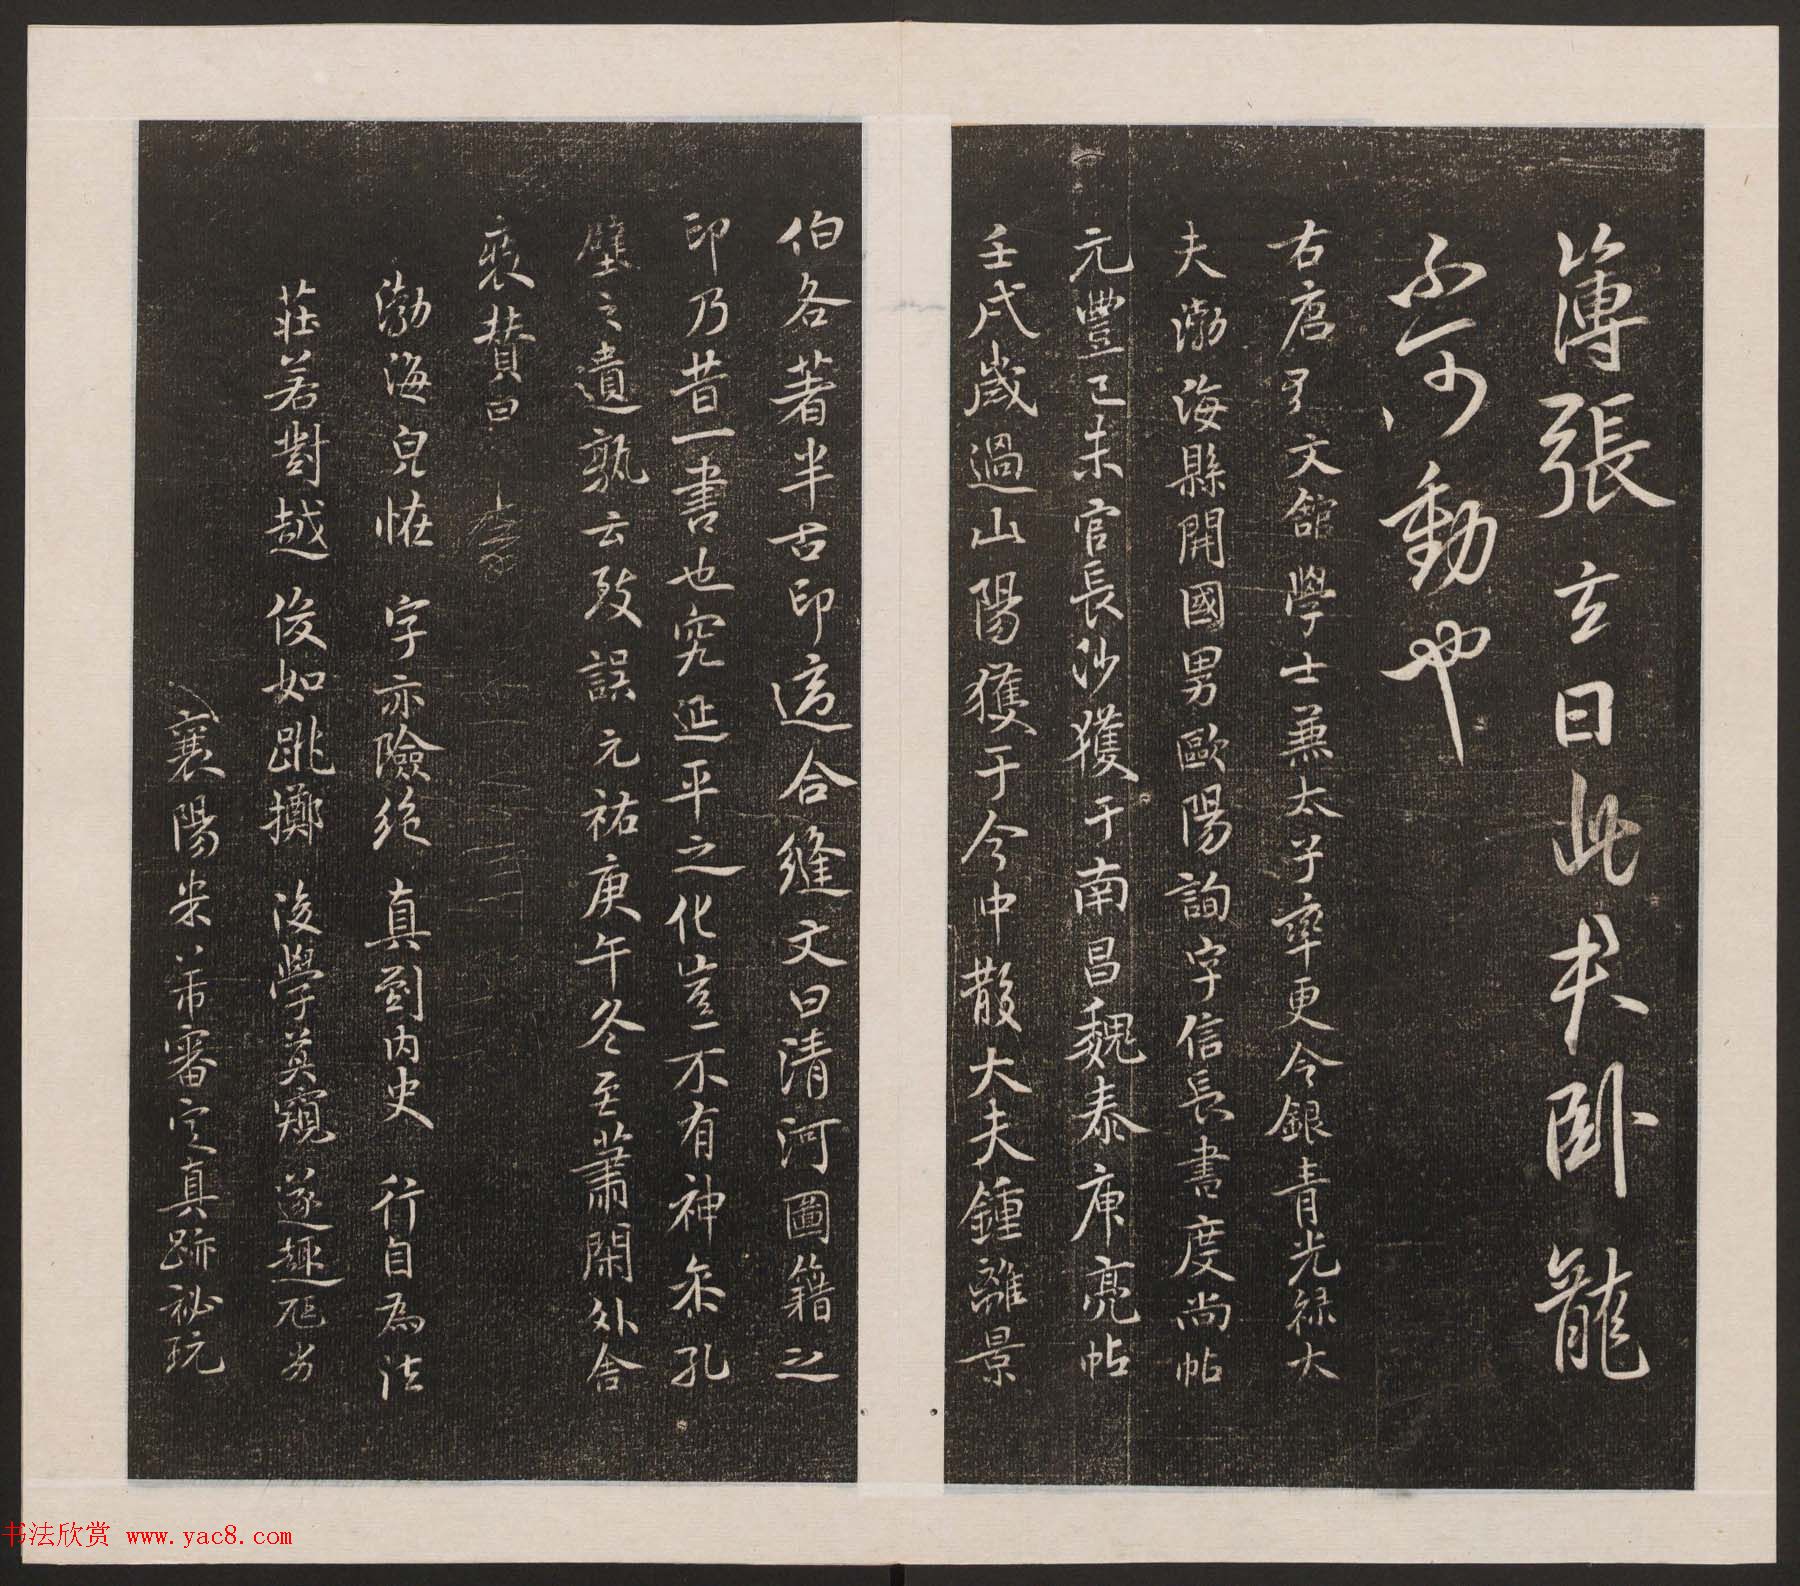 簿張玄曰此夫卧龍
不可動也
右唐弘文館學士兼太子率更令銀青光祿大
夫渤海縣開國男歐陽詢字信長書度尚帖
元豐己未官長沙獲于南昌魏泰庾亮帖
壬戌歲過山陽獲于今中散大夫鍾離景
伯各著半古印這合縫文曰清河圖籍之
印乃昔一書也究延平之化豈不有神矣孔
壁之遺孰云致誤元祐庚午冬至蕭閑外舍
裝贊曰
渤海皃恠 字亦險絕 真到內史 行自為法
莊若對越 俊如跳擲 後學莫窺 遂趣尫劣
襄陽米芾審定真跡祕玩
书法欣赏 www.yac8.com